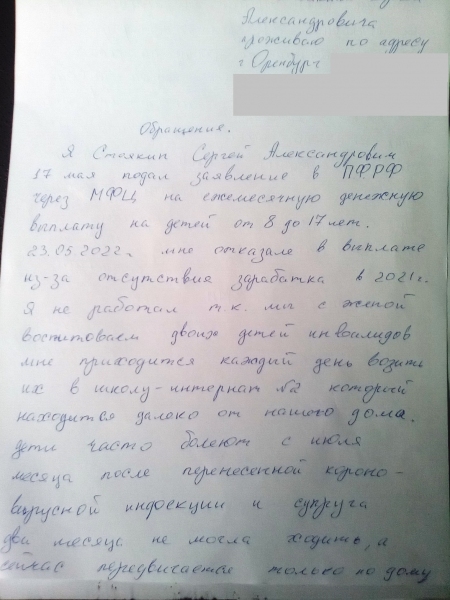 Александровича
проживаю по адресу
г Оренбург
Обращение.
Я Стоякин Сергей Александрович
17 мая подал заявление в ПФРФ
через МФЦ на ежемесячную денежную
выплату на детей от 8 до 17 лет.
23.05.2022г. мне отказале в выплате
из-за отсутствия заработка в 2021г.
Я не работал т.к. мы с женой
воспитоваем двоих детей инвоалидов
мне приходится каждый день возить
их в школу-интернат №2 который
находится далеко от нашего дома.
дети часто болеют с июля
месяца после перенесенной короно-
вирусной инфекции и супруга
два месяца не могла ходить, а
сейчас передвигается только по дому